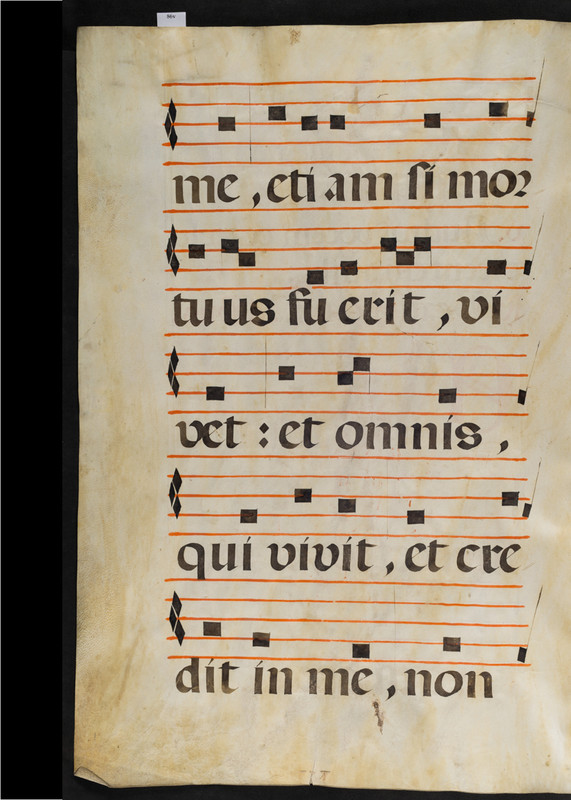 me, eti am si mor
tu us fu erit, vi
vet: et omnis,
qui vivit, et cre
dit in me, non